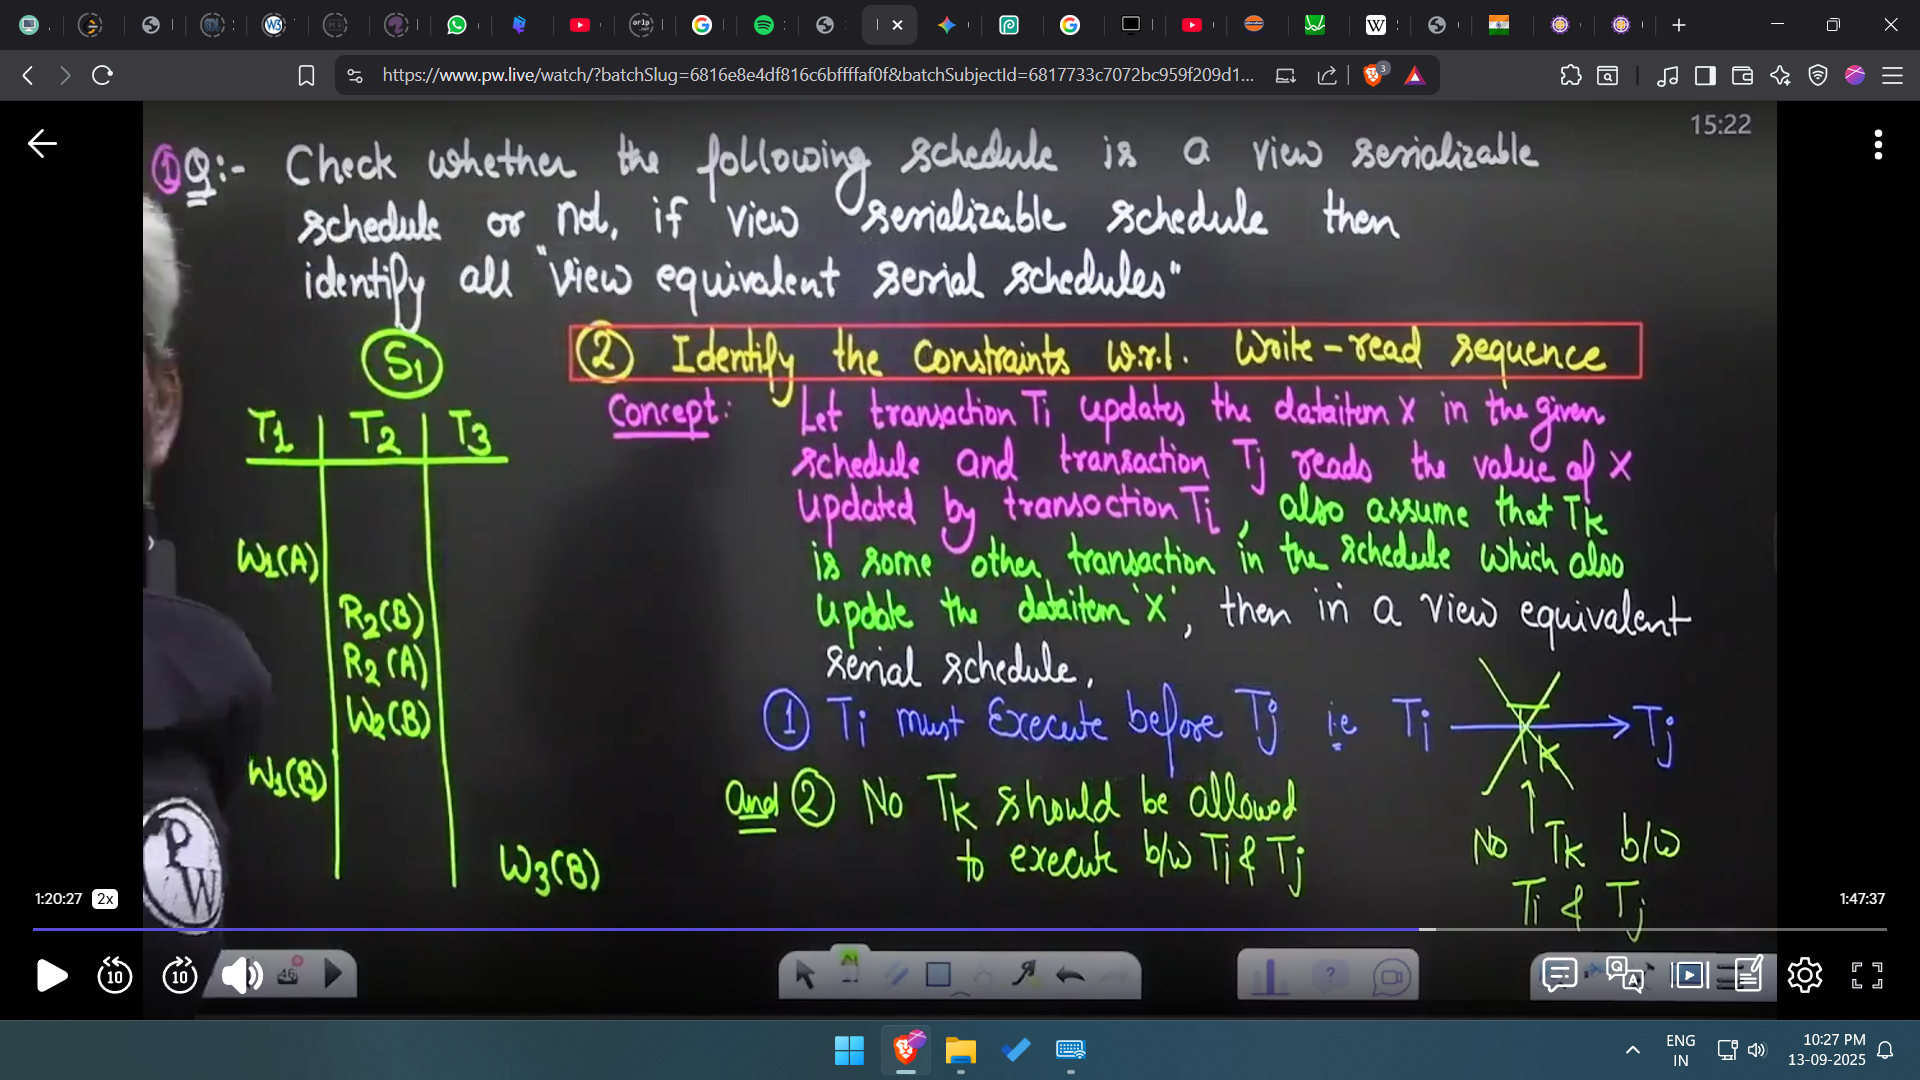 https://www.pw.live/watch/?batchSlug=6816e8e4df816c6bffffaf0f&batchSubjectId=6817733c7072bc959f209d1...
3
15:22
① Q:- Check whether the following schedule is a view serializable
schedule or not, if view serializable schedule then
identify all "view equivalent serial schedules"
S1
② Identify the Constraints w.r.t. Write-read sequence
Concept: Let transaction Ti updates the dataitem X in the given
schedule and transaction Tj reads the value of X
updated by transaction Ti, also assume that Tk
is some other transaction in the schedule which also
update the dataitem 'X', then in a view equivalent
serial schedule,
① Ti must Execute before Tj i.e Ti → Tj
Tk
And ② No Tk should be allowed
to execute b/w Ti & Tj
No Tk b/w
Ti & Tj
T1 T2 T3
W1(A)
R2(B)
R2(A)
W2(B)
W1(B)
W3(B)
PW
1:20:27 2x
1:47:37
10 10
46
ENG
IN
10:27 PM
13-09-2025